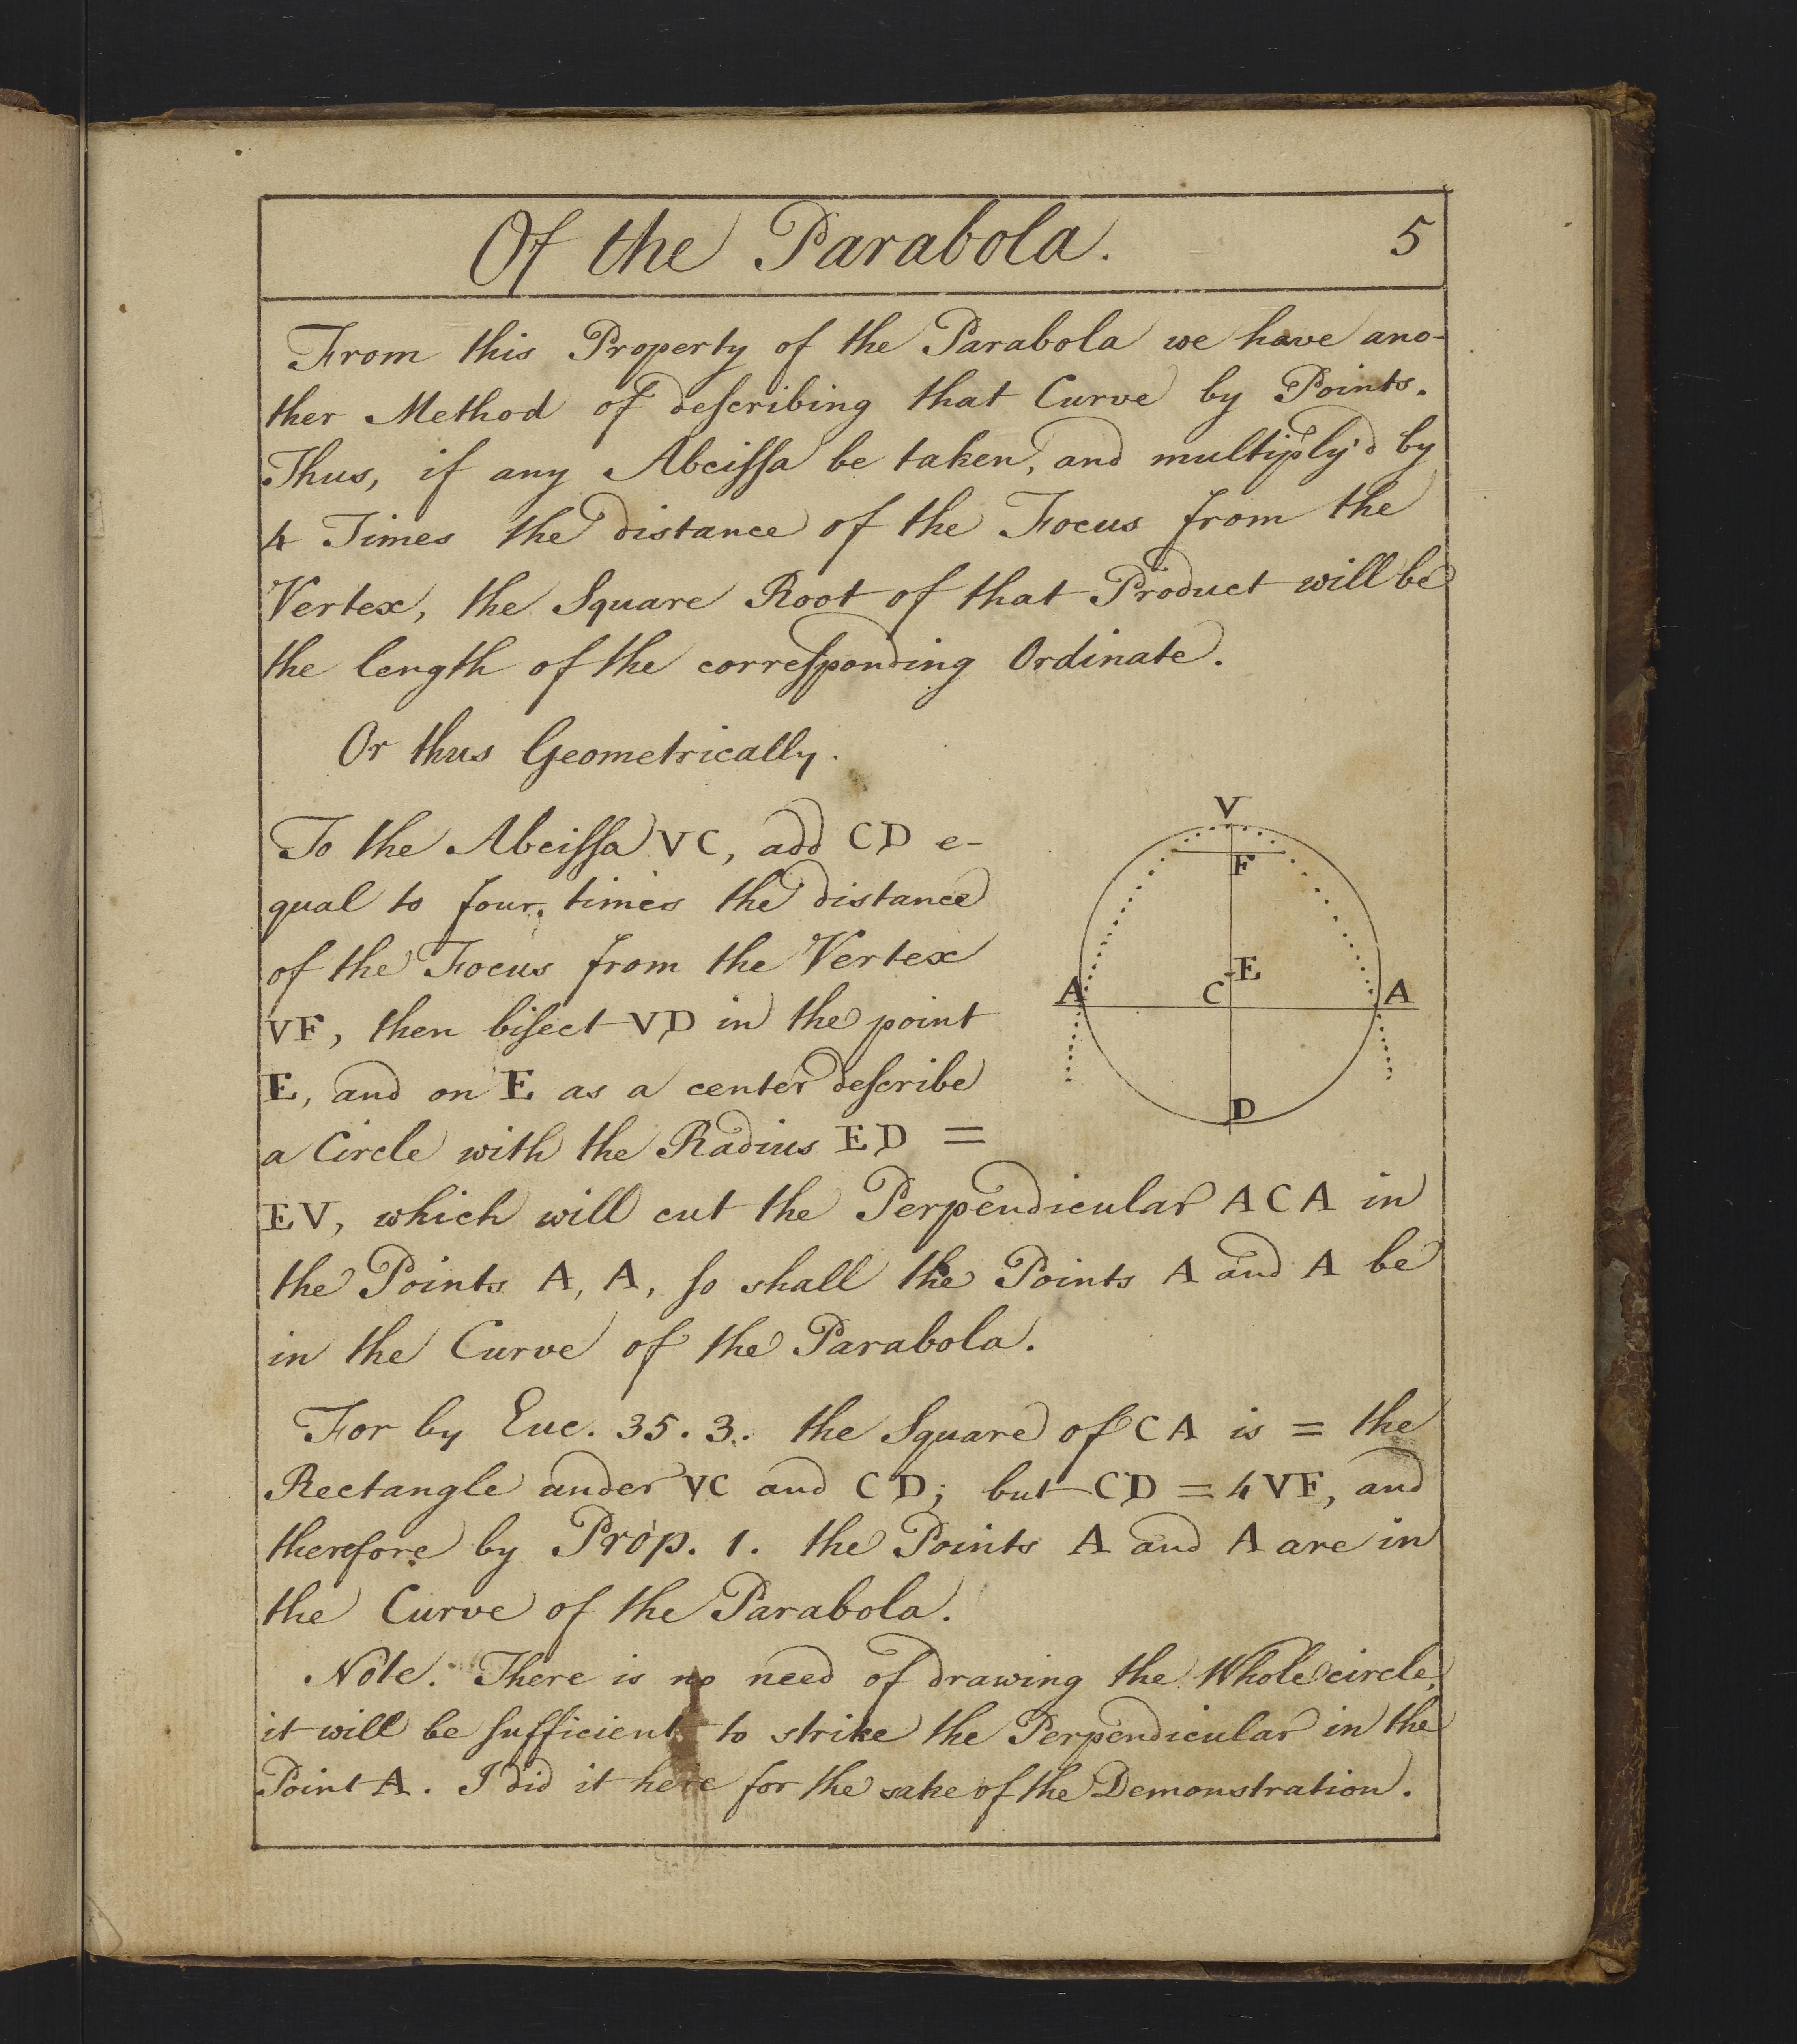 Of the Parabola. 5
From this Property of the Parabola we have ano-
ther Method of deſcribing that Curve by Points.
Thus, if any Abciſſa be taken, and multiply'd by
4 Times the distance of the Focus from the
Vertex, the Square Root of that Product will be
the length of the correſponding Ordinate.
Or thus Geometrically.
To the Abciſſa VC, add CD e-
qual to four times the distance
of the Focus from the Vertex
VF, then biſect VD in the point
E, and on E as a center deſcribe
a Circle with the Radius ED =
V
F
E
A C A
D
EV, which will cut the Perpendicular ACA in
the Points A, A, ſo shall the Points A and A be
in the Curve of the Parabola.
For by Euc. 35. 3. the Square of CA is = the
Rectangle under VC and CD; but CD = 4VF, and
therefore by Prop. 1. the Points A and A are in
the Curve of the Parabola.
Note. There is no need of drawing the Whole circle,
it will be ſufficient to strike the Perpendicular in the
Point A. I did it here for the sake of the Demonstration.